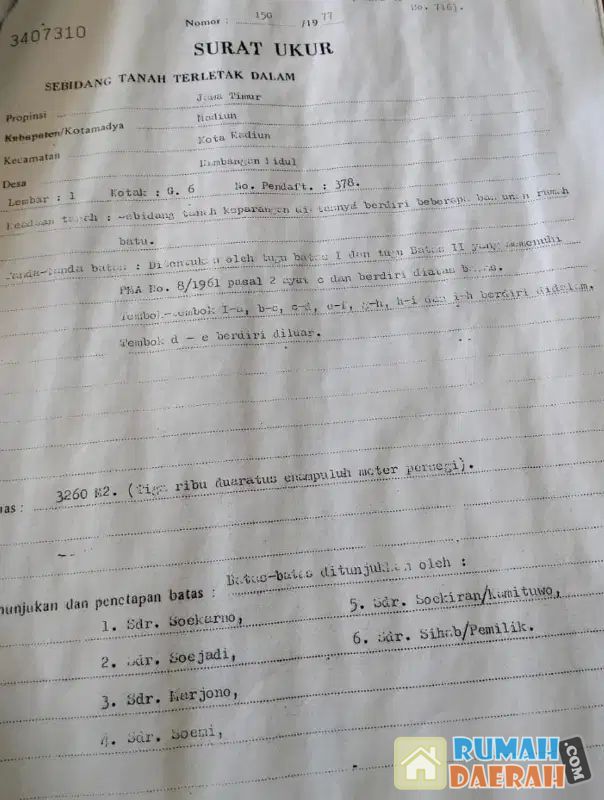 No. 716).
3407310
Nomor : 150 /1977
SURAT UKUR
SEBIDANG TANAH TERLETAK DALAM
Propinsi Jawa Timur
Kabupaten/Kotamadya Madiun
Kecamatan Kota Madiun
Desa Kambangan Kidul
Lembar : 1 Kotak : G. 6 No. Pendaft. : 378.
Keadaan tanah : Sebidang tanah keparangan diatasnya berdiri beberapa bangunan rumah
batu.
Tanda-tanda batas : Ditentukan oleh tugu batas I dan tugu Batas II yang memenuhi
PMA No. 8/1961 pasal 2 ayat c dan berdiri diatas batas.
Tembok-tembok I-a, b-c, c-d, e-f, g-h, h-i dan i-h berdiri didalam.
Tembok d - e berdiri diluar.
uas : 3260 M2. (Tiga ribu duaratus enampuluh meter persegi).
nunjukan dan penetapan batas : Batas-batas ditunjukkan oleh :
1. Sdr. Soekarno,
2. Sdr. Soejadi,
3. Sdr. Marjono,
4. Sdr. Soemi,
5. Sdr. Soekiran/Kamituwo,
6. Sdr. Sihab/Pemilik.
RUMAH
DAERAH
.COM